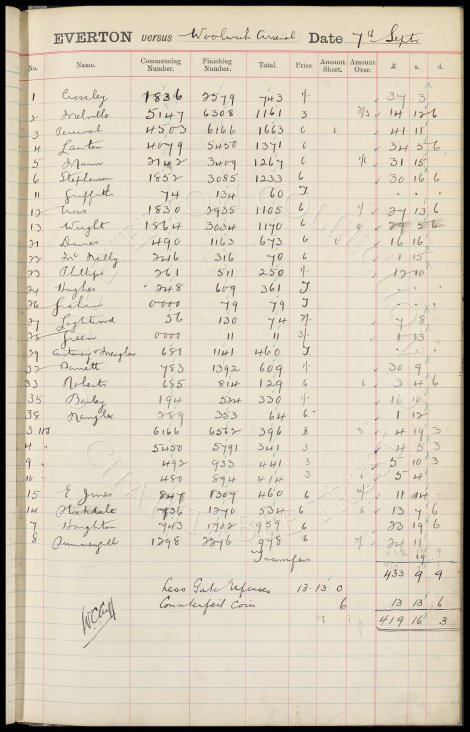 EVERTON versus Woolwich Arsenal Date 7th Septr
No. Name. Commencing Number. Finishing Number. Total. Price. Amount Short. Amount Over. £ s. d.
1 Crossley 1836 2579 743 1/- 37 3
2 Melville 5147 6308 1161 3 2/3 14 12 6
3 Percival 4503 6166 1663 6 6 41 11
4 Lawton 4079 5450 1371 6 34 5 6
5 Mann 2142 3409 1267 6 1/6 31 15
6 Stephenson 1852 3085 1233 6 30 16 6
11 Griffiths 74 134 60 T
12 1830 2935 1105 6 27 13 6
13 Wright 1864 3034 1170 6 29 5 6
21 Davies 490 1163 673 6 6 16 16
22 McNelly 246 316 70 6 1 15
23 Phillips 261 511 250 1/- 12 10
24 Hughes 248 609 361 T
26 Graham 0000 79 79 T
27 Lightwood 56 130 74 2/- 7 8
28 Green 0000 11 11 3/- 1 13
29 681 1141 460 T
32 Barrett 783 1392 609 1/- 30 9
33 Roberts 685 814 129 6 6 3 4 6
35 Bailey 194 524 330 1/- 16 10
38 Mangles 289 353 64 6 1 12
3 6166 6562 396 3 3 4 19 3
4 " 5450 5791 341 3 4 5 3
9 492 933 441 3 5 10 3
10 480 894 414 3 6 5 4
15 E Jones 847 1307 460 6 4/- 11 14
14 Stockdale 736 1270 534 6 6 13 7 6
7 Houghton 743 1702 959 6 23 19 6
8 Summergill 1298 2276 978 6 24 11
Transfers 19 9
433 9 9
Less Gate Expenses 13-13-0
Counterfeit Coin 6 13 13 6
419 16 3
W.C.Cuff